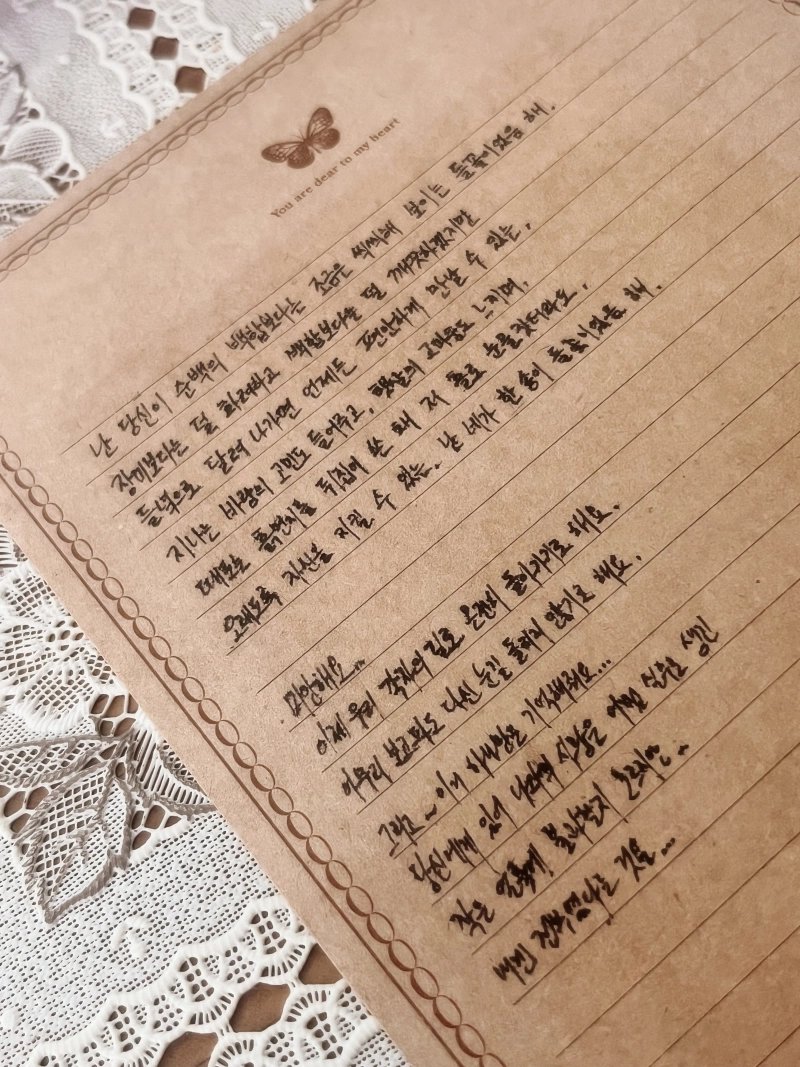 You are dear to my heart
난 당신이 순백의 백합보다는 조금은 씩씩해 보이는 들꽃이었음 해.
장미보다는 덜 화려하고 백합보다는 덜 깨끗하겠지만
들녘으로 달려 나가면 언제든 편안하게 만날 수 있는,
지나는 바람의 고민도 들어주고, 햇살의 고마움도 느끼며,
때로는 흙먼지를 뒤집어 쓴 채 저 홀로 눈물짓더라도,
오래도록 자신을 지킬 수 있는. 난 네가 한 송이 들꽃이었음 해.
미안해요..
이제 우리 각자의 길로 온전히 돌아가기로 해요.
아무리 보고파도 다신 눈길 돌리지 않기로 해요.
그리고~ 이거 하나만은 기억해줘요...
당신에게 있어 나와의 사랑은 어쩜 실수로 생긴
작은 얼룩에 불과할지 모르지만..
내겐 전부였다는 것을...